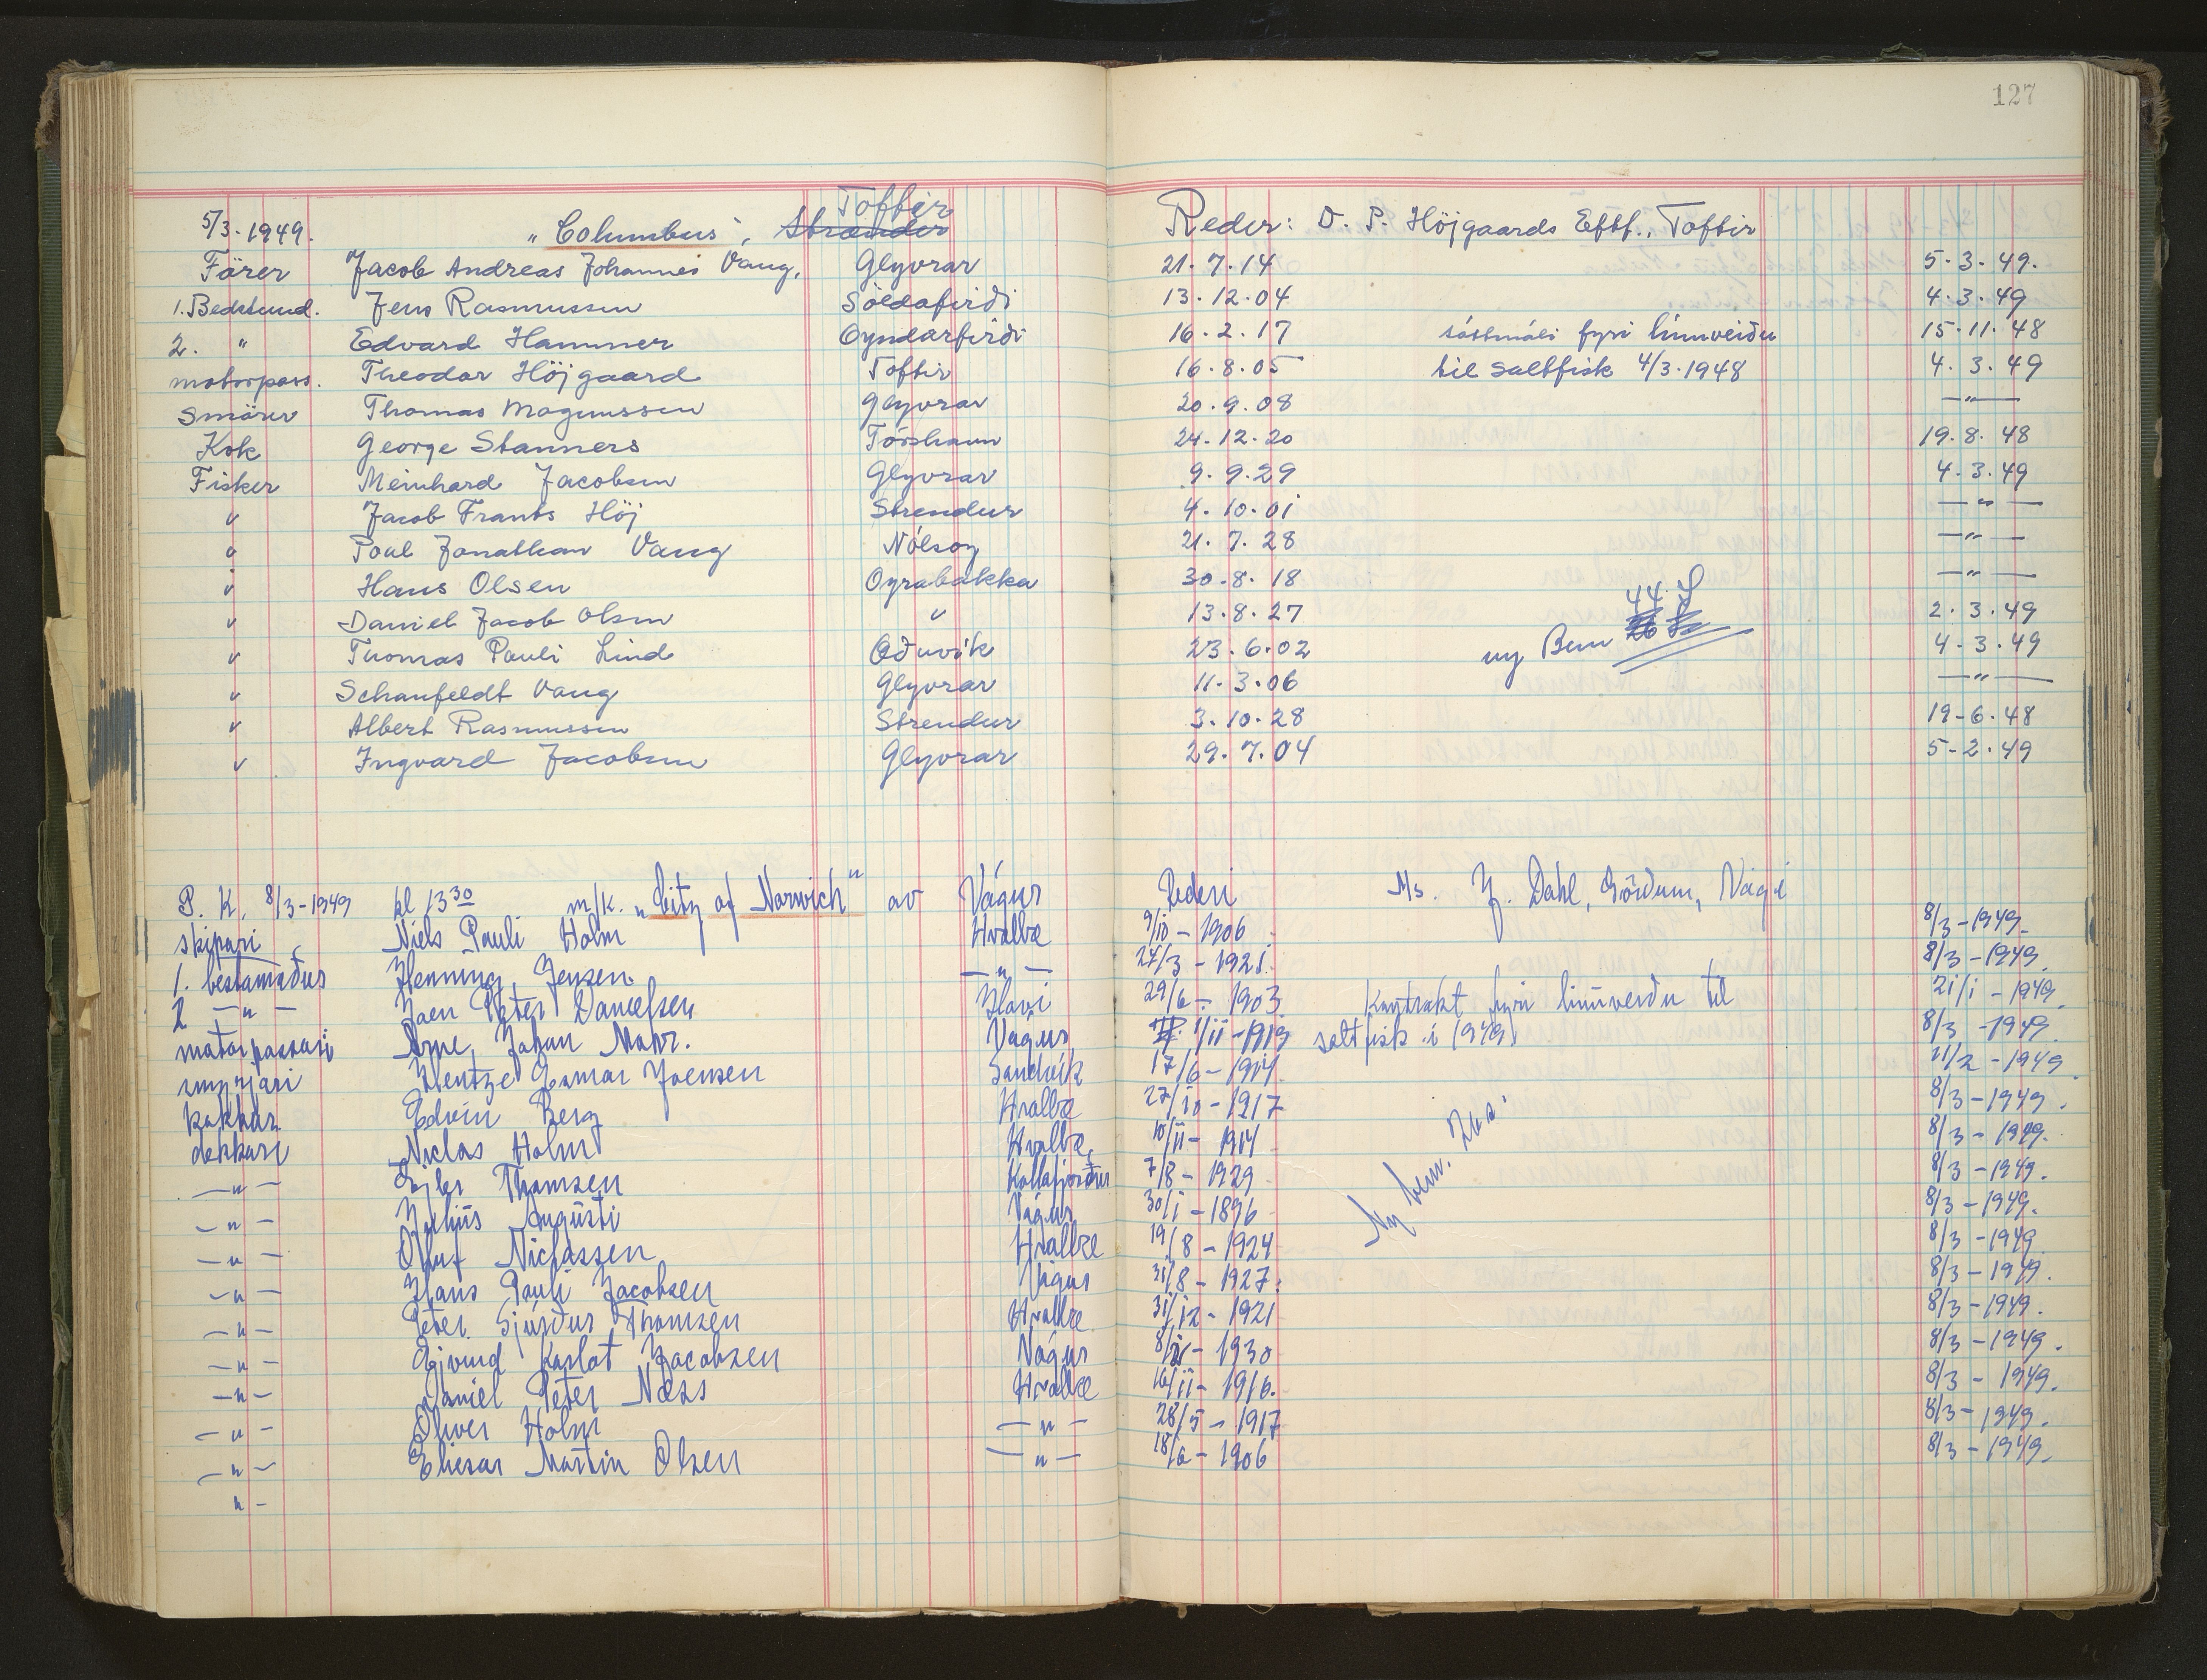 127
5/3-1949. "Columbus", Strænder Toftir Reder: D. P. Höjgaards Eftf., Toftir
Förer Jacob Andreas Johannes Vang, Glyvrar 21.7.14 5.3.49.
1. Bedstmd. Jens Rasmussen Söldafirði 13.12.04 4.3.49
2. " Edvard Hammer Oyndarfirði 16.2.17 sáttmáli fyri línuveiðu 15.11.48
motorpass. Theodor Höjgaard Toftir 16.8.05 til saltfisk 4/3-1948 4.3.49
Smörer Thomas Magnussen Glyvrar 20.9.08 — " —
Kok George Stanners Tórshavn 24.12.20 19.8.48
Fisker Meinhard Jacobsen Glyvrar 9.9.29 4.3.49
" Jacob Frants Höj Strendur 4.10.01 — " —
" Poul Jonathan Vang Nólsoy 21.7.28 — " —
" Hans Olsen Oyrabakka 30.8.18 — " —
" Daniel Jacob Olsen " 13.8.27 44 2.3.49
" Thomas Pauli Lind Oðnvík 23.6.02 ny Bem 4.3.49
" Schanfeldt Vang Glyvrar 11.3.06 — " —
" Albert Rasmussen Strendur 3.10.28 19-6.48
" Ingvard Jacobsen Glyvrar 29.7.04 5-2.49
P. K. 8/3-1949 kl 13 30 m/k. "City of Norwich" av Vágur Rederi Ms. J. Dahl, Görðum, Vági
skipari Niels Pauli Holm Hvalbæ 9/10-1906 8/3-1949.
1. bestamaður Henning Jensen — " — 24/3-1921. 8/3-1949.
2 — " — Joen Peter Danielsen Havi 29/6-1903 Kontrakt fyri línuveiðu til 21/1-1949.
motorpassari Arne Johan Mohr. Vágur 1/11-1919 saltfisk í 1949 8/3-1949.
smyrjari Hentze Hjamar Joensen Sandvík 17/6-1914 11/2-1949.
kokkur Edvin Berg Hvalbæ 27/10-1917 8/3-1949.
dekkari Niclas Holm Hvalbæ, 10/11-1914 Ny bem. 26a. 8/3-1949.
— " — Eyler Thomsen Kollafjørður 7/8-1929 8/3-1949.
— " — Júliús Augústi Vágur 30/1-1896 8/3-1949.
— " — Oluf Niclassen Hvalbæ 19/8-1924 8/3-1949
— " — Hans Pauli Jacobsen Vágur 31/8-1927. 8/3-1949.
— " — Peter Sjúrður Thomsen Hvalbæ 31/12-1921 8/3-1949.
— " — Ejvind Karlot Jacobsen Vágur 1930 8/3-1949.
— " — Daniel Peter Næss Hvalbæ 16/11-1916. 8/3-1949.
— " — Oliver Holm — " — 28/5-1917 8/3-1949.
— " — Eliesar Martin Olsen — " — 18/6-1906 8/3-1949.
" —